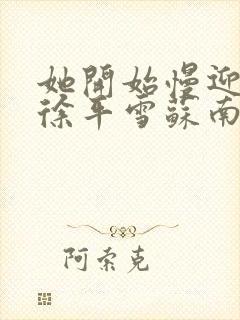 她開始慢迎
徐平雪蘇南
阿索克